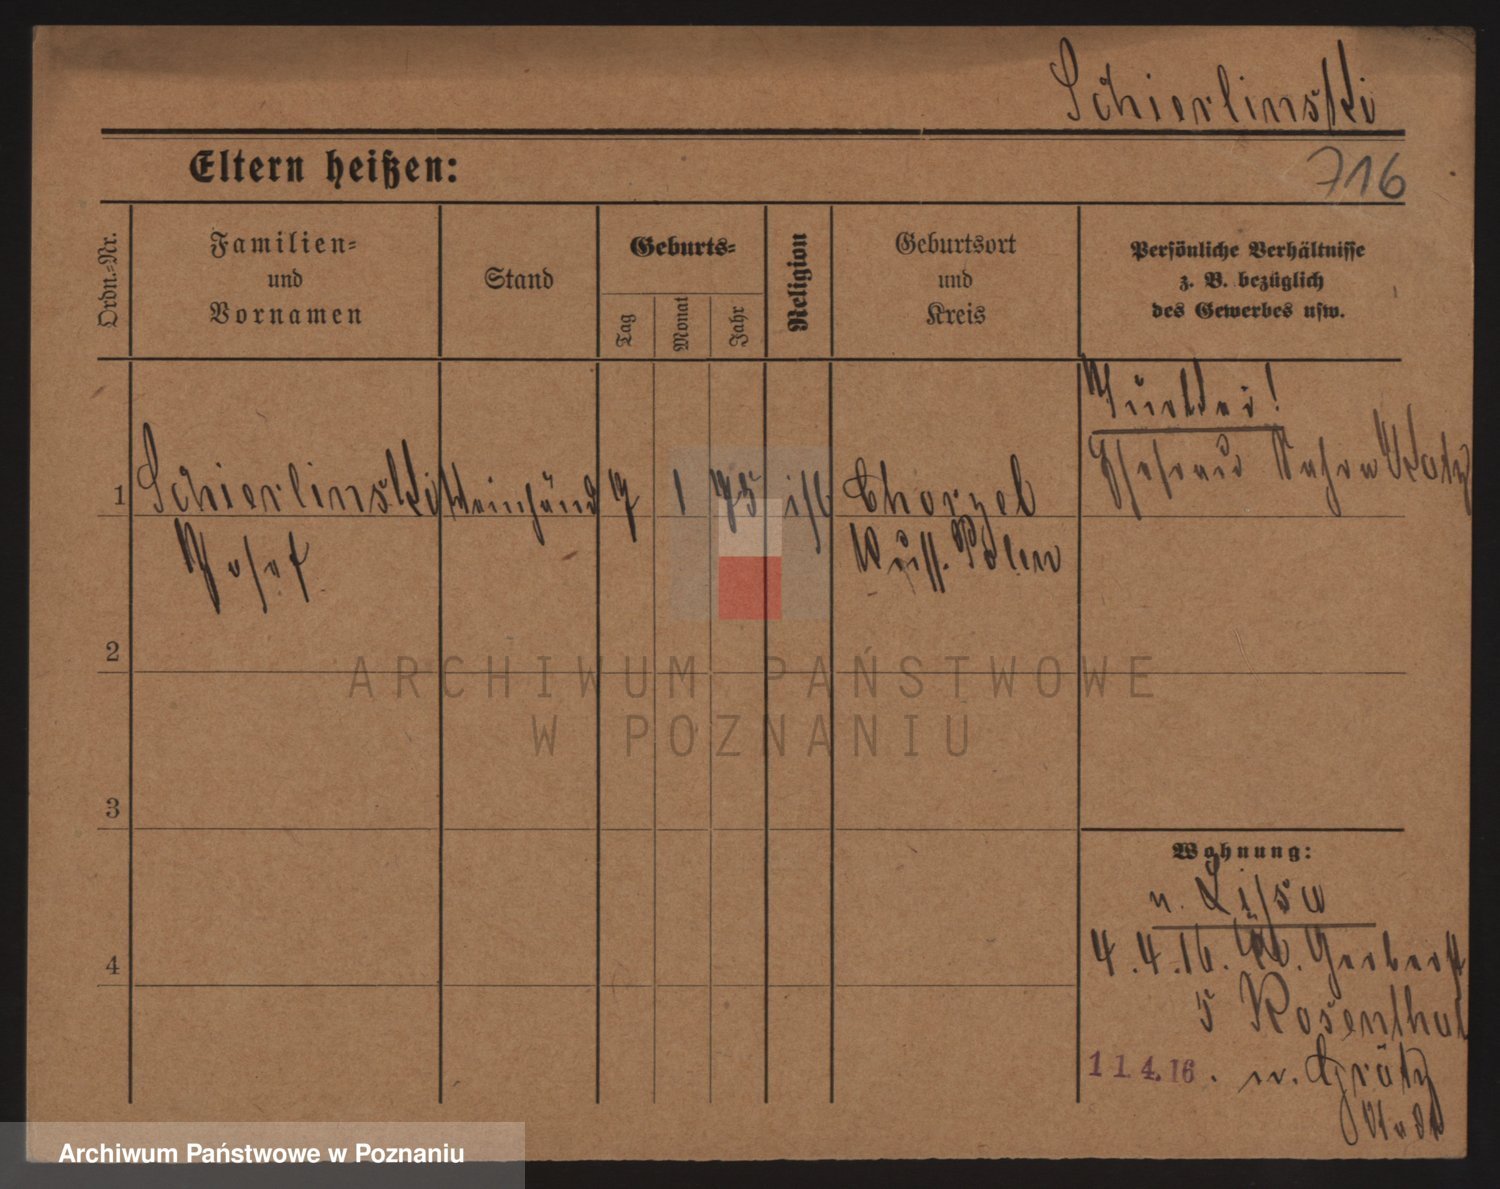 Schierlinski
Eltern heißen:
716
Ordn.-Nr.
Familien-
und
Vornamen
Stand
Geburts-
Tag
Monat
Jahr
Religion
Geburtsort
und
Kreis
Persönliche Verhältnisse
z. B. bezüglich
des Gewerbes usw.
Ehefrau Katz
1 Schierlinski 7 1 75 isr Chorzel
Josef Russ. Polen
2
ARCHIWUM PAŃSTWOWE
W POZNANIU
3
Wohnung:
n. Lissa
4
4.4.16. Gerberst
5 Rosenthal
11.4.16. n. Grätz
Archiwum Państwowe w Poznaniu